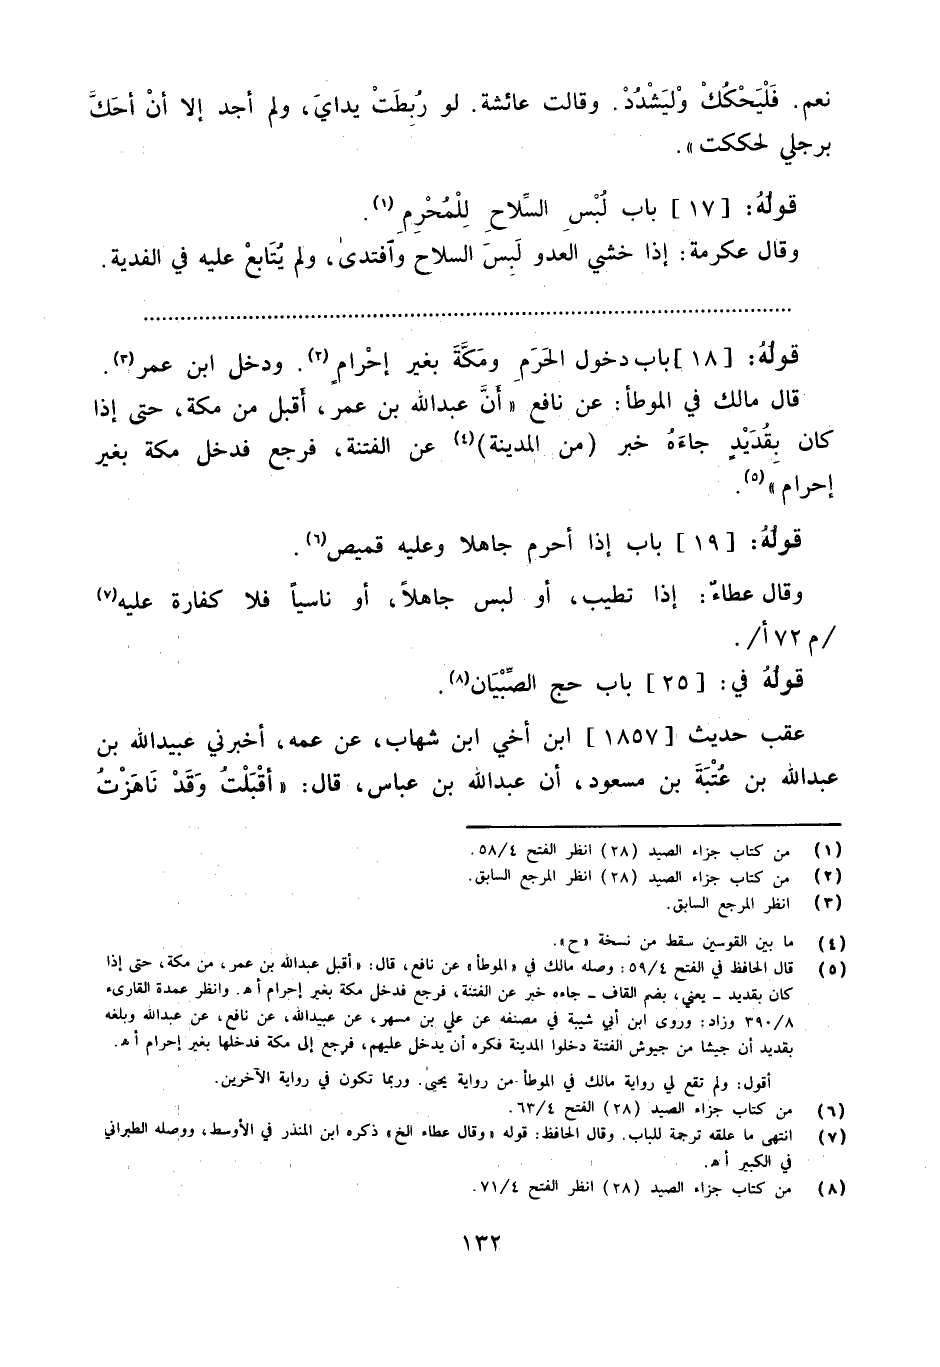 نعم. فَلْيَحْكُكْ وْليَشْدُدْ. وقالت عائشة. لو رُبِطَتْ يدايَ، ولم أجد إلا أنْ أحَكَّ
برجلي لحككت».
قولُهُ: [١٧] باب لُبْسِ السِّلاحِ لِلْمُحْرِمِ(١).
وقال عكرمة: إذا خشي العدو لَبِسَ السلاح وٱفتدىٰ، ولم يُتَابعْ عليه في الفدية.
قولُهُ: [١٨] باب دخول الحَرَمِ ومَكَّةَ بغير إحْرامٍ(٢). ودخل ابن عمر(٣).
قال مالك في الموطأ: عن نافع «أنَّ عبدالله بن عمر، أَقبل من مكة، حتى إذا
كان بِقُدَيْدٍ جاءَهُ خبر (من المدينة)(٤) عن الفتنة، فرجع فدخل مكة بغير
إحرام»(٥).
قولُهُ: [١٩] باب إذا أحرم جاهلا وعليه قميص(٦).
وقال عطاءٌ: إذا تطيب، أو لبس جاهلاً، أو ناسياً فلا كفارة عليه(٧)
/م ٧٢ أ/.
قولُهُ في: [٢٥] باب حج الصِّبْيَان(٨).
عقب حديث [١٨٥٧] ابن أخي ابن شهاب، عن عمه، أخبرني عبيدالله بن
عبدالله بن عُتْبَةَ بن مسعود، أن عبدالله بن عباس، قال: «أقْبَلْتُ وَقَدْ نَاهَزْتُ
(١) من كتاب جزاء الصيد (٢٨) انظر الفتح ٥٨/٤.
(٢) من كتاب جزاء الصيد (٢٨) انظر المرجع السابق.
(٣) انظر المرجع السابق.
(٤) ما بين القوسين سقط من نسخة «ح».
(٥) قال الحافظ في الفتح ٥٩/٤: وصله مالك في «الموطأ» عن نافع، قال: «أقبل عبدالله بن عمر، من مكة، حتى إذا
كان بقديد ـ يعني، بضم القاف ـ جاءه خبر عن الفتنة، فرجع فدخل مكة بغير إحرام أ هـ. وانظر عمدة القارىء
٣٩٠/٨ وزاد: وروى ابن أبي شيبة في مصنفه عن علي بن مسهر، عن عبيدالله، عن نافع، عن عبدالله وبلغه
بقديد أن جيشا من جيوش الفتنة دخلوا المدينة فكره أن يدخل عليهم، فرجع إلى مكة فدخلها بغير إحرام أ هـ.
أقول: ولم تقع لي رواية مالك في الموطأ من رواية يحيىٰ. وربما تكون في رواية الآخرين.
(٦) من كتاب جزاء الصيد (٢٨) الفتح ٦٣/٤.
(٧) انتهى ما علقه ترجمة للباب. وقال الحافظ: قوله «وقال عطاء الخ» ذكره ابن المنذر في الأوسط، ووصله الطبراني
في الكبير أ هـ.
(٨) من كتاب جزاء الصيد (٢٨) انظر الفتح ٧١/٤.
١٣٢